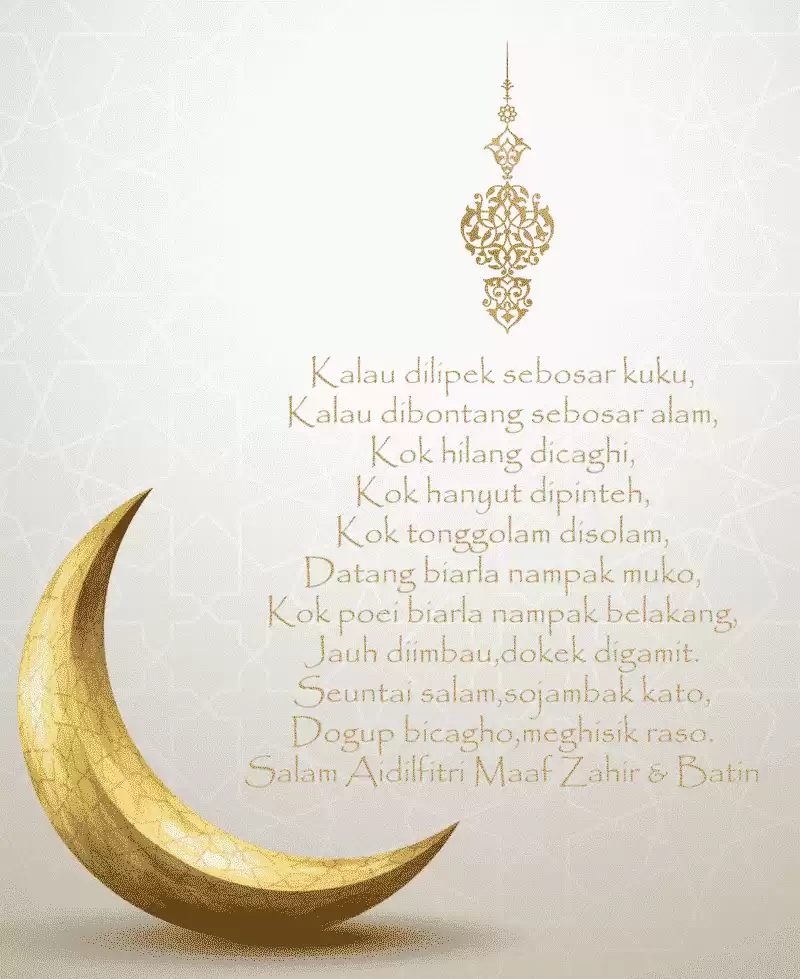 Kalau dilipek sebosar kuku,
Kalau dibontang sebosar alam,
Kok hilang dicaghi,
Kok hanyut dipinteh,
Kok tonggolam disolam,
Datang biarla nampak muko,
Kok poei biarla nampak belakang,
Jauh diimbau,dokek digamit.
Seuntai salam,sojambak kato,
Dogup bicagho,meghisik raso.
Salam Aidilfitri Maaf Zahir & Batin